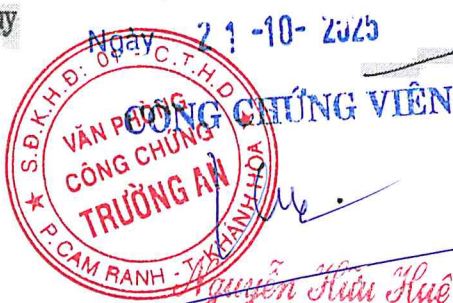 Ngày 21-10-2025
CÔNG CHỨNG VIÊN
S.Đ.K.H.Đ: 01 C.T.H.D
VĂN PHÒNG
CÔNG CHỨNG
TRƯỜNG AN
P.CAM RANH - T.KHÁNH HÒA
Nguyễn Hữu Huê